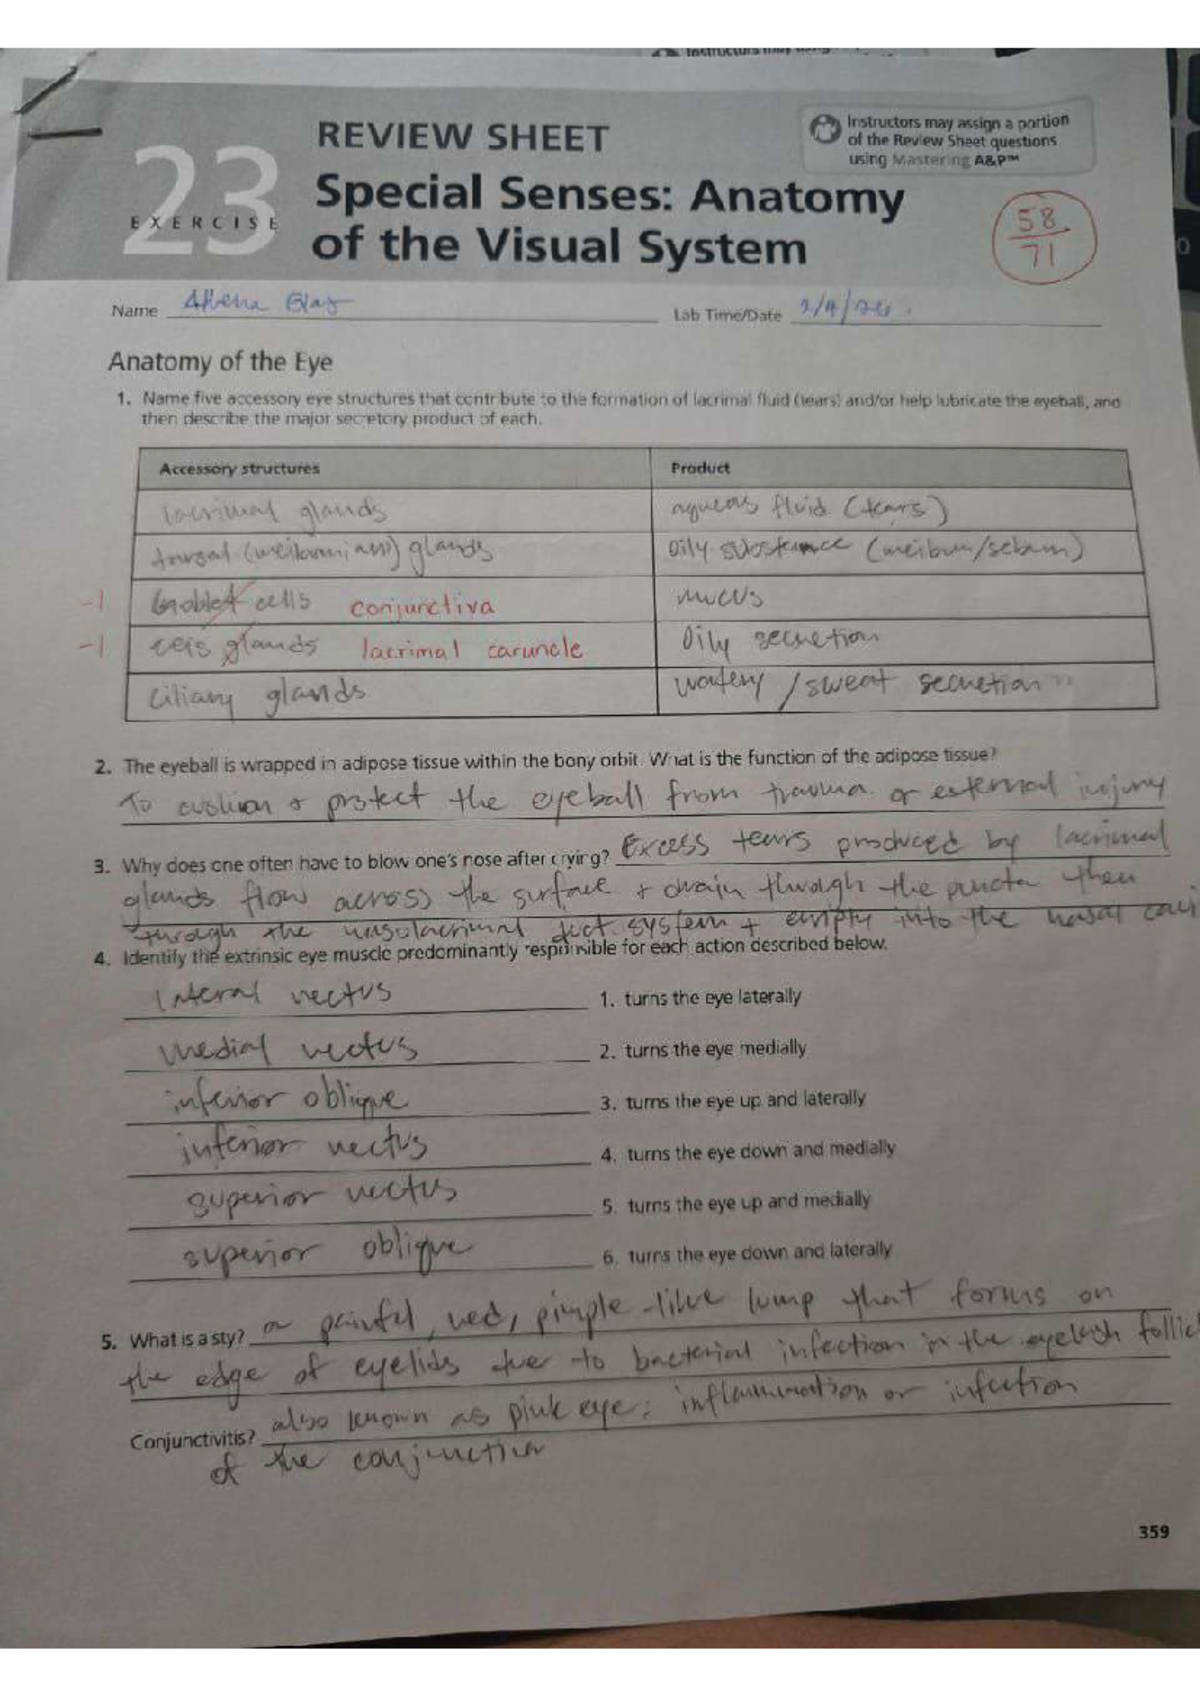 REVIEW SHEET
Instructors may assign a portion
of the Review Sheet questions
using Mastering A&P™
23
EXERCISE
Special Senses: Anatomy
of the Visual System
58
71
Name Athena
Lab Time/Date 2/4/
Anatomy of the Eye
1. Name five accessory eye structures that contribute to the formation of lacrimal fluid (tears) and/or help lubricate the eyeball, and
then describe the major secretory product of each.
Accessory structures Product
lacrimal glands aqueous fluid (tears)
tarsal (meibomian) glands oily substance (meibum/sebum)
-1 Goblet cells conjunctiva mucus
-1 ceis glands lacrimal caruncle oily secretion
ciliary glands watery / sweat secretion
2. The eyeball is wrapped in adipose tissue within the bony orbit. What is the function of the adipose tissue?
To cushion & protect the eyeball from trauma or external injury
3. Why does one often have to blow one's nose after crying? Excess tears produced by lacrimal
glands flow across the surface & drain through the puncta then
through the nasolacrimal duct system + empty into the nasal cavi
4. Identify the extrinsic eye muscle predominantly responsible for each action described below.
lateral rectus 1. turns the eye laterally
medial rectus 2. turns the eye medially
inferior oblique 3. turns the eye up and laterally
inferior rectus 4. turns the eye down and medially
superior rectus 5. turns the eye up and medially
superior oblique 6. turns the eye down and laterally
5. What is a sty? a painful, red, pimple-like lump that forms on
the edge of eyelids due to bacterial infection in the eyelash follic
Conjunctivitis? also known as pink eye: inflammation or infection
of the conjunctiva
359